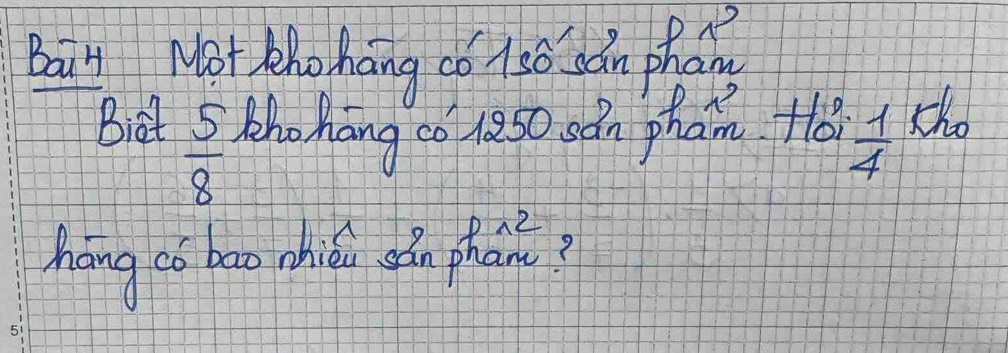 Bài 4 Một kho hàng có 1 số sản phẩm
Biết 5/8 kho hàng có 1250 sản phẩm. Hỏi 1/4 kho
hàng có bao nhiêu sản phẩm?
5